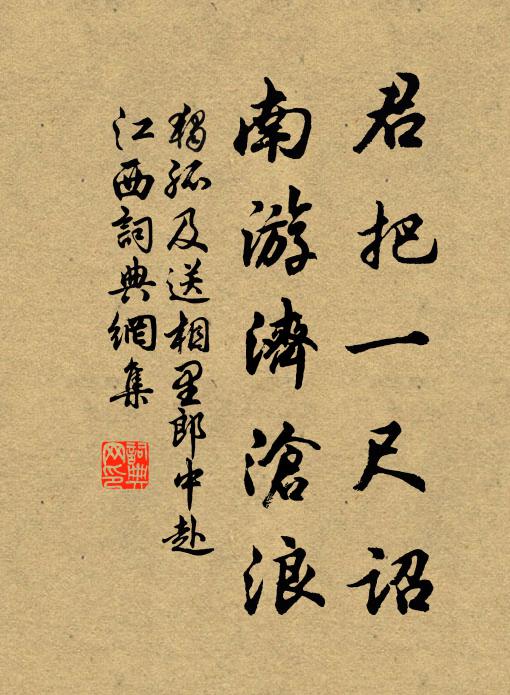 君把一尺詔
南游濟滄浪
獨孤及送相里郎中赴
江西詞典網集
詞典
网印